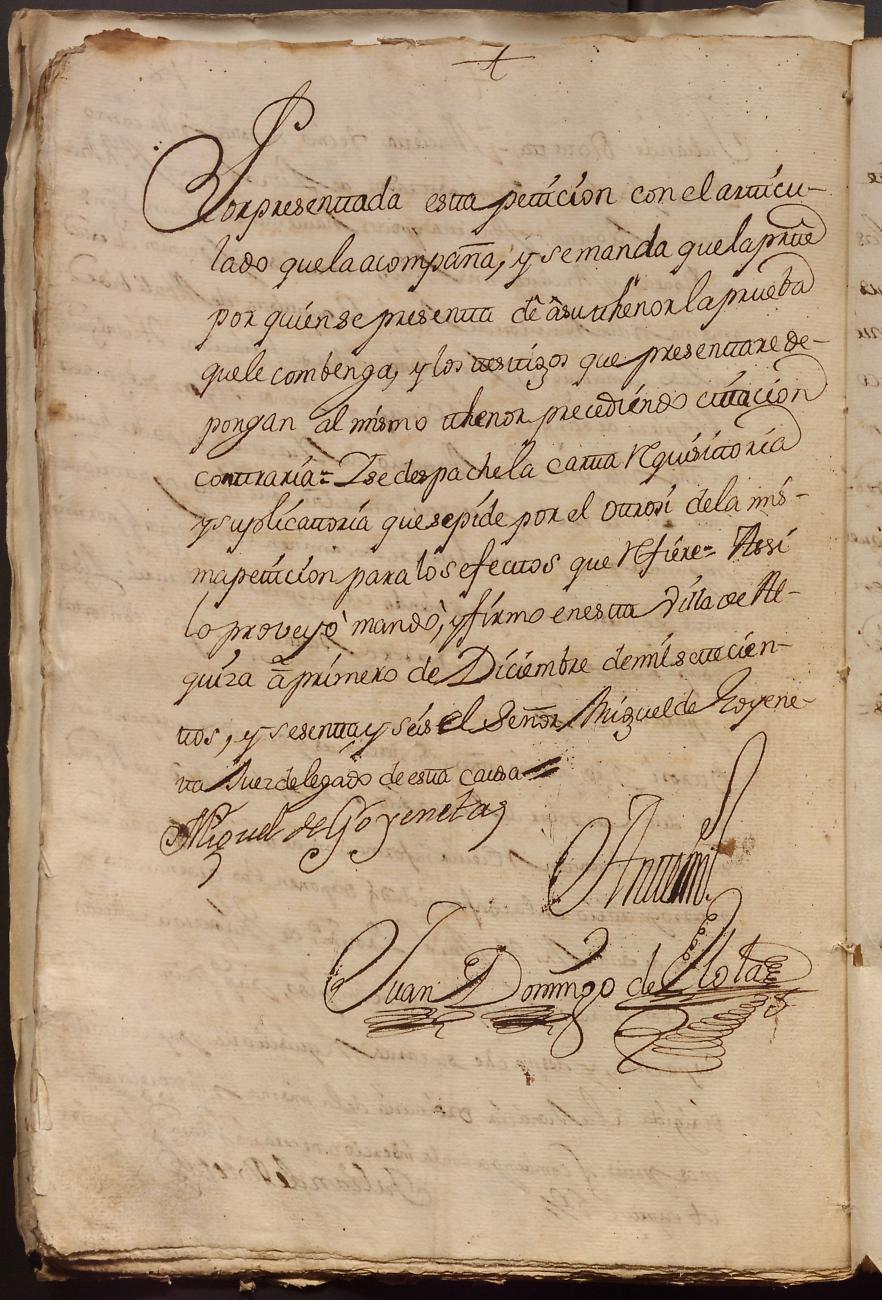 Por presenttada estta petticion con el articu-
lado que la acompaña, y se manda que la partte
por quien se presentta dê â su thenor la prueba
que le combenga, y los testtigos que presenttare de-
pongan al mismo thenor precediendo cittacion
contraria= Y se despache la cartta requisittoria
y suplicattoria que se pide por el ottrosi de la mis-
ma petticion para los efecttos que refiere= Assi
lo proveyò mandò, y firmo en estta Villa de Al-
quiza â primero de Diciembre de mil settecien-
ttos, y sesentta y seis el Señor Miguel de Goyene-
tta Juez delegado de estta causa=
Miguel de Goyeneta
Antte mi
Juan Domingo de